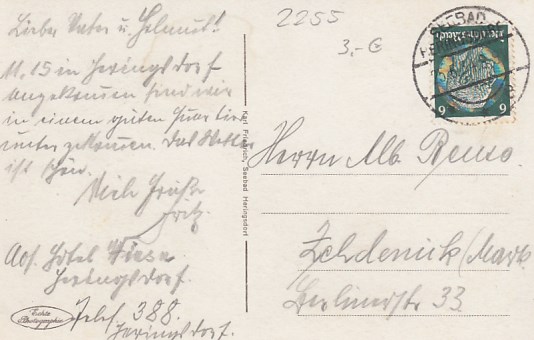 2255
3,-€
Lieber Vater u. Helmut!
11.15 in Heringsdorf
angekommen sind wir
in einem guten Quartier
untergekommen. Das Wetter
ist schön.
Viele Grüße
Fritz.
Abs. Hotel
Heringsdorf.
Telef 388.
Heringsdorf.
Echte
Photographie
Karl Friedrich, Seebad Heringsdorf
SEEBAD
6 6
Herrn Alb.
Zehdenick/Mark
Berlinerstr 33.